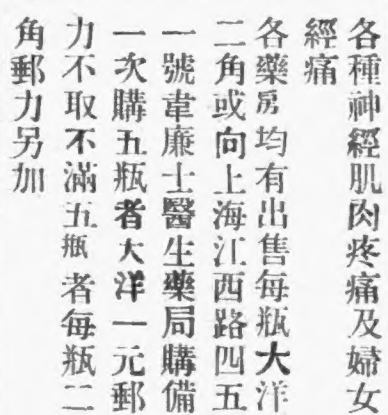 各種神經肌肉疼痛及婦女
經痛
各藥房均有出售每瓶大洋
二角或向上海江西路四五
一號韋廉士醫生藥局購備
一次購五瓶者大洋一元郵
力不取不滿五瓶者每瓶二
角郵力另加